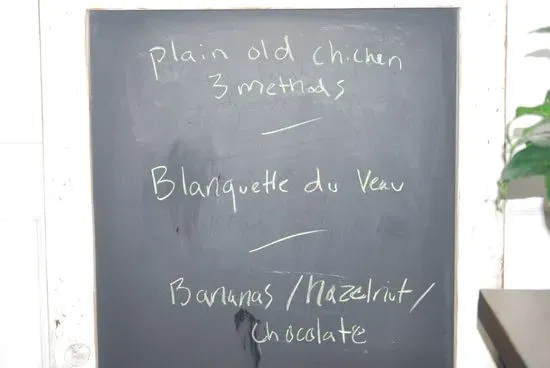 plain old chicken
3 methods
Blanquette du Veau
Bananas / hazelnut /
chocolate